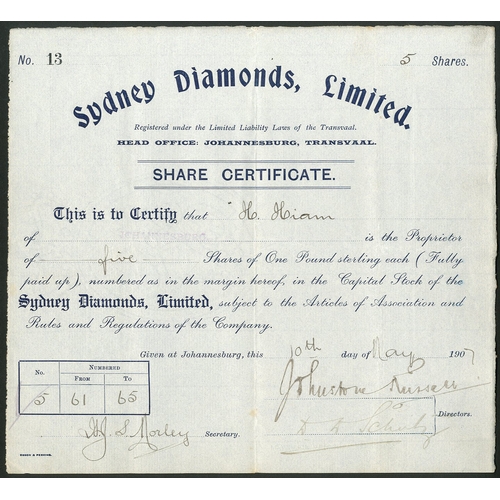 No. 13
5 Shares.
Sydney Diamonds, Limited.
Registered under the Limited Liability Laws of the Transvaal.
HEAD OFFICE: JOHANNESBURG, TRANSVAAL.
SHARE CERTIFICATE.
This is to Certify that H. Hiam
of is the Proprietor
of five Shares of One Pound sterling each (Fully
paid up), numbered as in the margin hereof, in the Capital Stock of the
Sydney Diamonds, Limited, subject to the Articles of Association and
Rules and Regulations of the Company.
Given at Johannesburg, this 10th day of May 1907
No. NUMBERED
FROM TO
5 61 65
Johnstone Russell
Directors.
Morley Secretary.